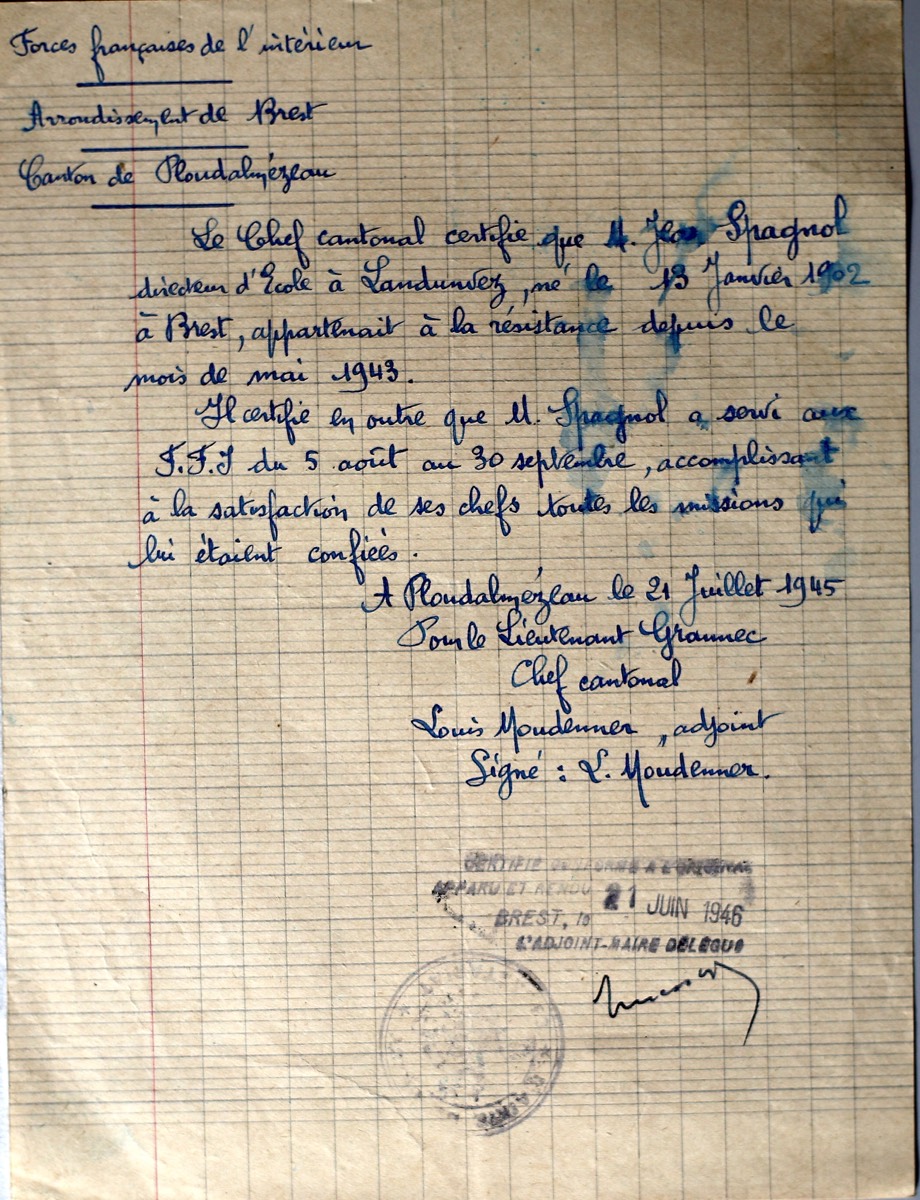 Forces françaises de l'intérieur
Arrondissement de Brest
Canton de Ploudalmézeau
Le Chef cantonal certifie que M. Jean Spagnol
directeur d'Ecole à Landunvez, né le 13 Janvier 1902
à Brest, appartenait à la résistance depuis le
mois de mai 1943.
Il certifie en outre que M. Spagnol a servi aux
F.F.I du 5 août au 30 septembre, accomplissant
à la satisfaction de ses chefs toutes les missions qui
lui étaient confiées.
A Ploudalmézeau le 21 Juillet 1945
Pour le Lieutenant Grannec
Chef cantonal
Louis Moudenner, adjoint
Signé : L. Moudenner.
CERTIFIE CONFORME A L'ORIGINAL
APPARU ET RENDU
BREST, le 21 JUIN 1946
L'ADJOINT-MAIRE DELEGUE